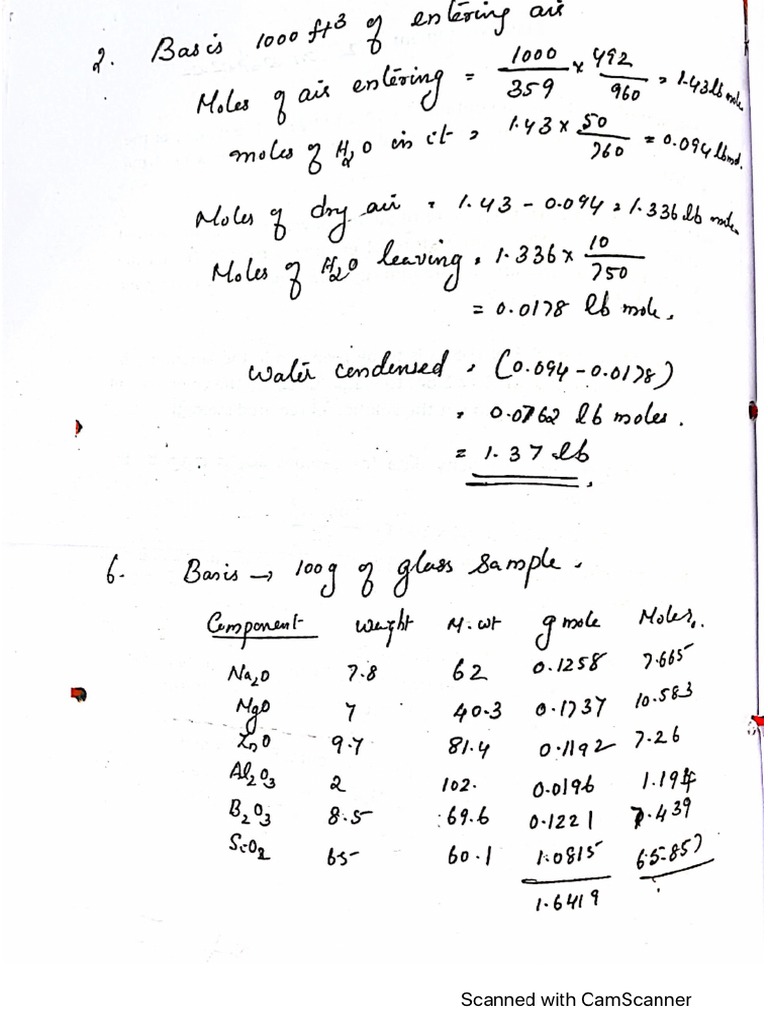 2. Basis 1000 ft3 of entering air
Moles of air entering = 1000/359 × 492/960 = 1.43 lb mole
moles of H2O in it = 1.43 × 50/760 = 0.094 lbmol.
Moles of dry air = 1.43 - 0.094 = 1.336 lb mole
Moles of H2O leaving = 1.336 × 10/750
= 0.0178 lb mole.
Water condensed = (0.094 - 0.0178)
= 0.0762 lb moles.
= 1.37 lb
6. Basis → 100g of glass sample.
Component Weight M. wt g mole Moles.
Na2O 7.8 62 0.1258 7.665
MgO 7 40.3 0.1737 10.583
ZnO 9.7 81.4 0.1192 7.26
Al2O3 2 102. 0.0196 1.194
B2O3 8.5 69.6 0.1221 7.439
SiO2 65 60.1 1.0815 65.857
1.6419
Scanned with CamScanner